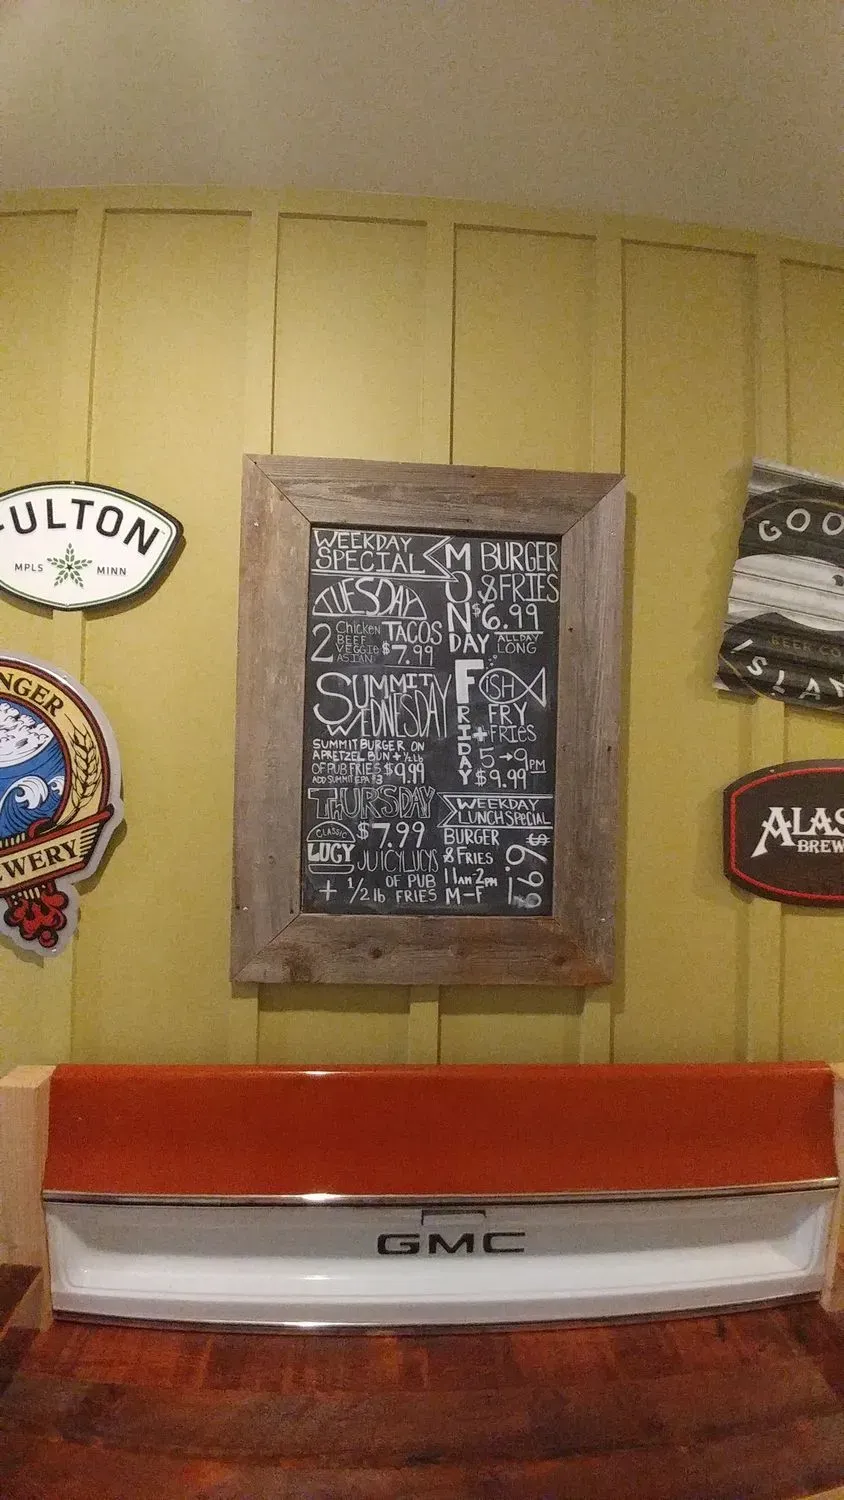 FULTON
MPLS MINN
NGER
EWERY
WEEKDAY
SPECIAL
TUESDAY
2 Chicken
BEEF
VEGGIE
ASIAN
TACOS
$7.99
SUMMIT
WEDNESDAY
SUMMIT BURGER ON
A PRETZEL BUN + 1/2 lb
OF PUB FRIES $9.99
ADD SUMMIT EPA $3
THURSDAY
CLASSIC
LUCY
$7.99
JUICYLUCYS
+ 1/2 lb OF PUB
FRIES
MONDAY
BURGER
& FRIES
$6.99
ALL DAY
LONG
FRIDAY
FISH
FRY
+ FRIES
5→9PM
$9.99
WEEKDAY
LUNCH SPECIAL
BURGER
& FRIES
11AM-2PM
M-F
$6.99
GOO
BEER CO
ISLAN
ALAS
BREW
GMC